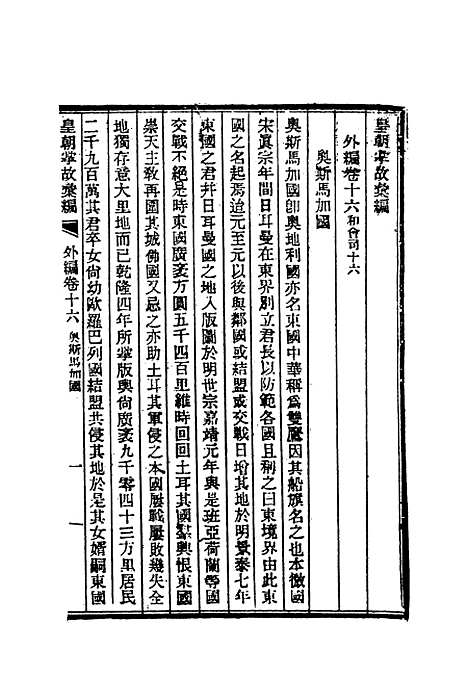 皇朝掌故彙編
外編卷十六和會司十六
奧斯馬加國
奧斯馬加國卽奧地利國亦名東國中華稱爲雙鷹因其船旗名之也本微國
宋眞宗年間日耳曼在東界別立君長以防範各國且稱之曰東境界由此東
國之名起焉迨元至元以後與鄰國或結盟或交戰日增其地於明景泰七年
東國之君幷日耳曼國之地入版圖於明世宗嘉靖元年與是班亞荷蘭等國
交戰不絕是時東國廣袤方圓五千四百里維時回回土耳其國羣興恨東國
崇天主敎再圍其城佛國又忌之亦助土耳其軍侵之本國屢戰屢敗幾失全
地獨存意大里地而已乾隆四年所掌版輿尙廣袤九千零四十三方里居民
二千九百萬其君卒女尙幼歐羅巴列國結盟共侵其地於是其女婿嗣東國
皇朝掌故彙編 外編卷十六 奧斯馬加國 一